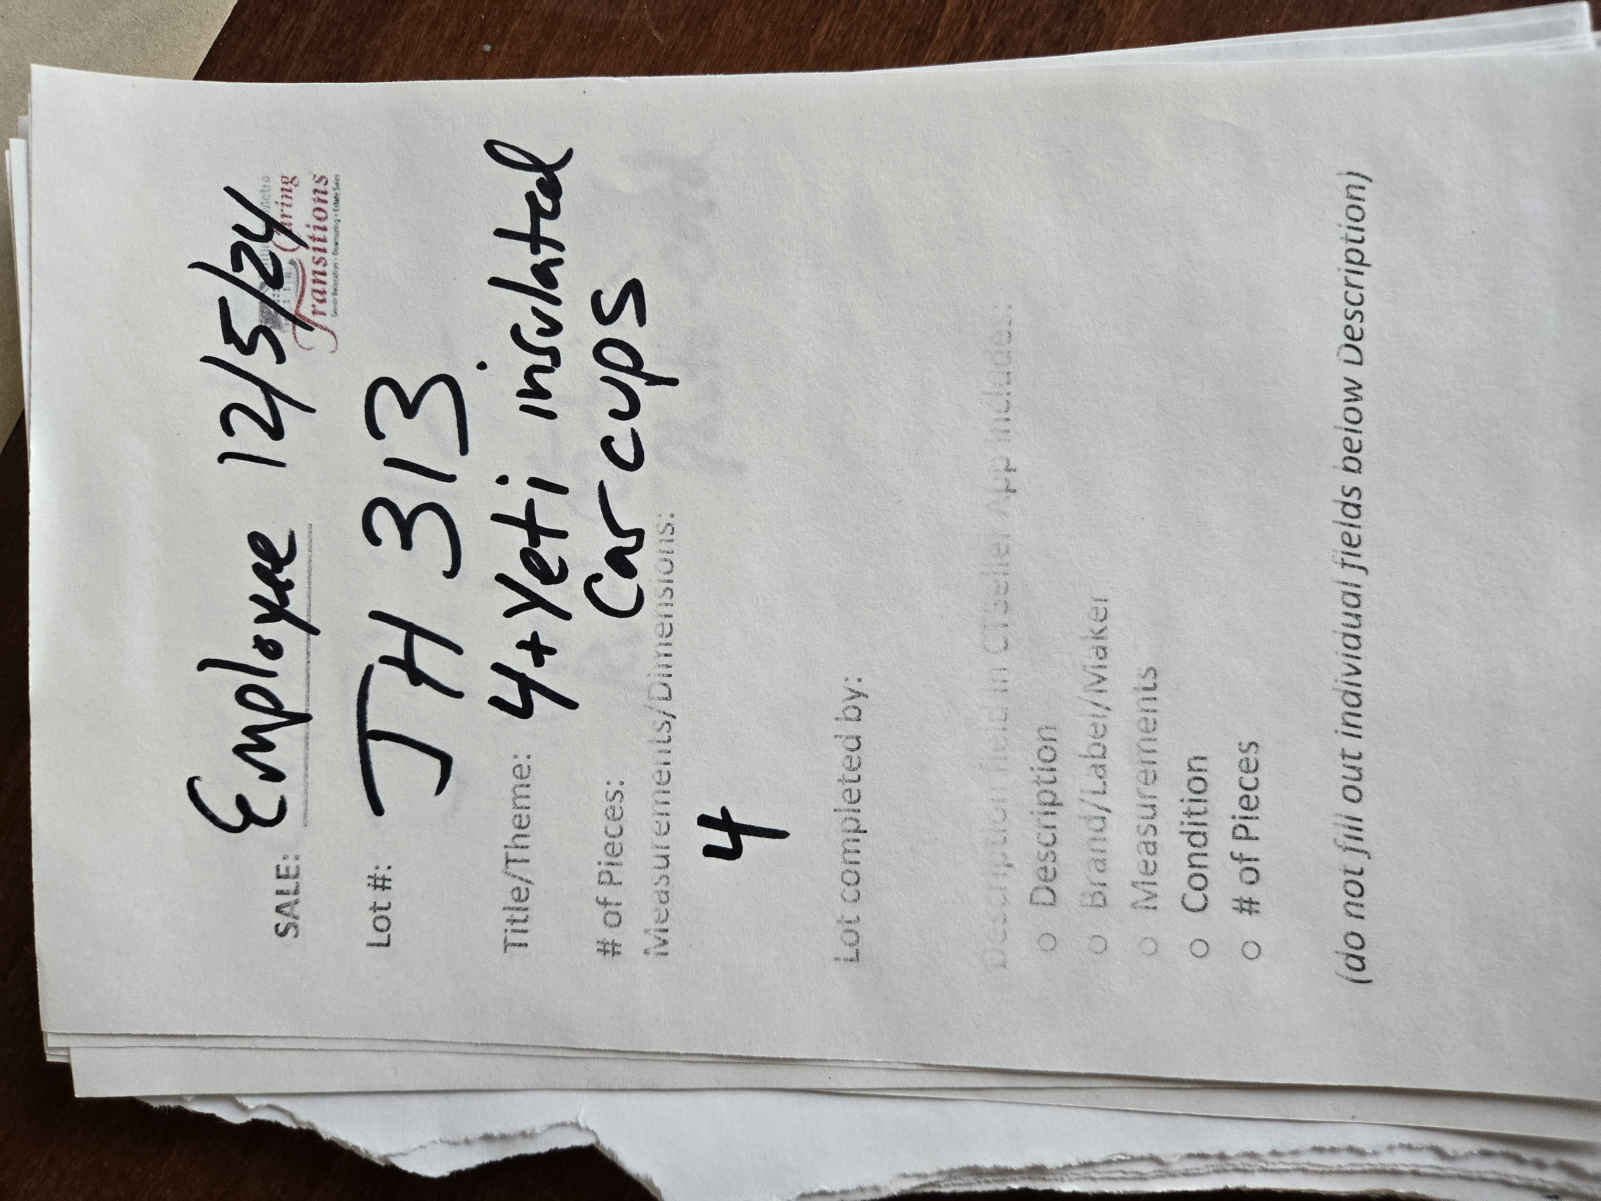 SALE: Employee 12/5/24
Caring
Transitions
Lot #: JH 313
Title/Theme: 4+ Yeti insulated
Car cups
# of Pieces:
Measurements/Dimensions:
4
Lot completed by:
Description field in CTseller App includes:
○ Description
○ Brand/Label/Maker
○ Measurements
○ Condition
○ # of Pieces
(do not fill out individual fields below Description)